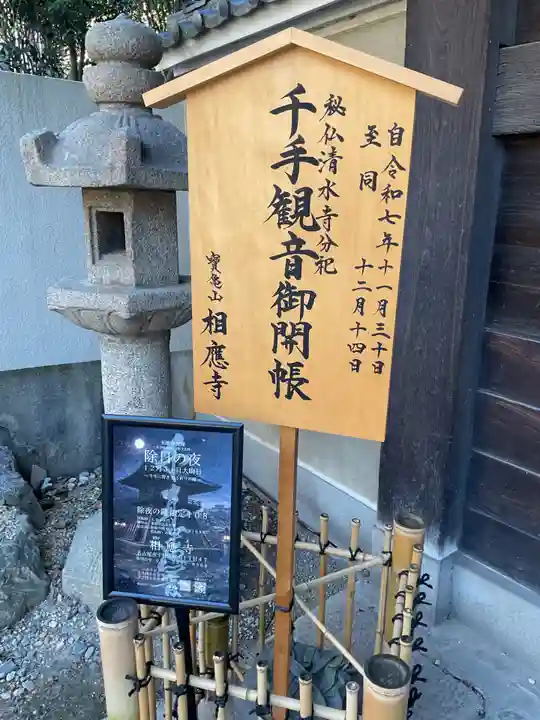 自令和七年十一月三十日
至同 十二月十四日
秘仏清水寺分祀
千手観音御開帳
寳亀山 相應寺
除日の夜
12月31日大晦日
除夜の鐘
相應寺